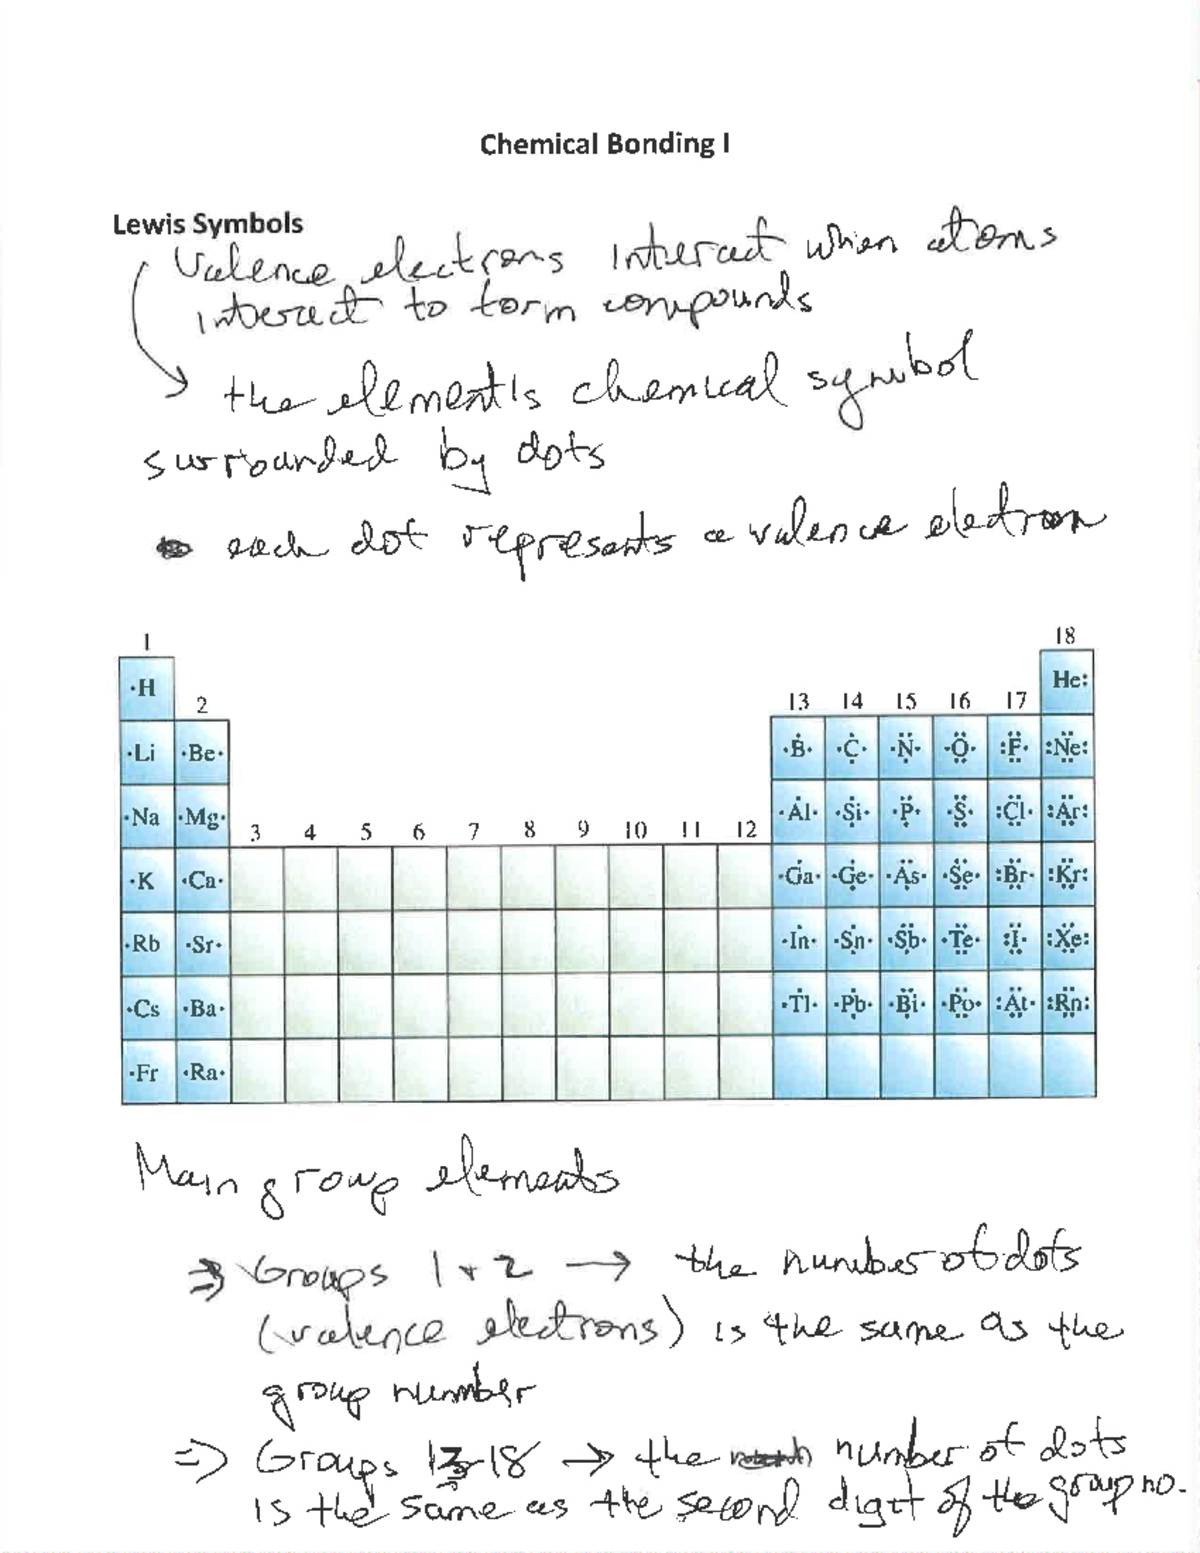 Chemical Bonding I
Lewis Symbols
Valence electrons interact when atoms
interact to form compounds
the element's chemical symbol
surrounded by dots
each dot represents a valence electron
1 18
·H He:
2 13 14 15 16 17
·Li ·Be· ·B· ·C· ·N· ·O· :F· :Ne:
·Na ·Mg· ·Al· ·Si· ·P· ·S· :Cl· :Ar:
3 4 5 6 7 8 9 10 11 12
·K ·Ca· ·Ga· ·Ge· ·As· ·Se· :Br· :Kr:
·Rb ·Sr· ·In· ·Sn· ·Sb· ·Te· :I· :Xe:
·Cs ·Ba· ·Tl· ·Pb· ·Bi· ·Po· :At· :Rn:
·Fr ·Ra·
Main group elements
⇒ Groups 1 + 2 → the number of dots
(valence electrons) is the same as the
group number
⇒ Groups 13-18 → the number of dots
is the same as the second digit of the group no.